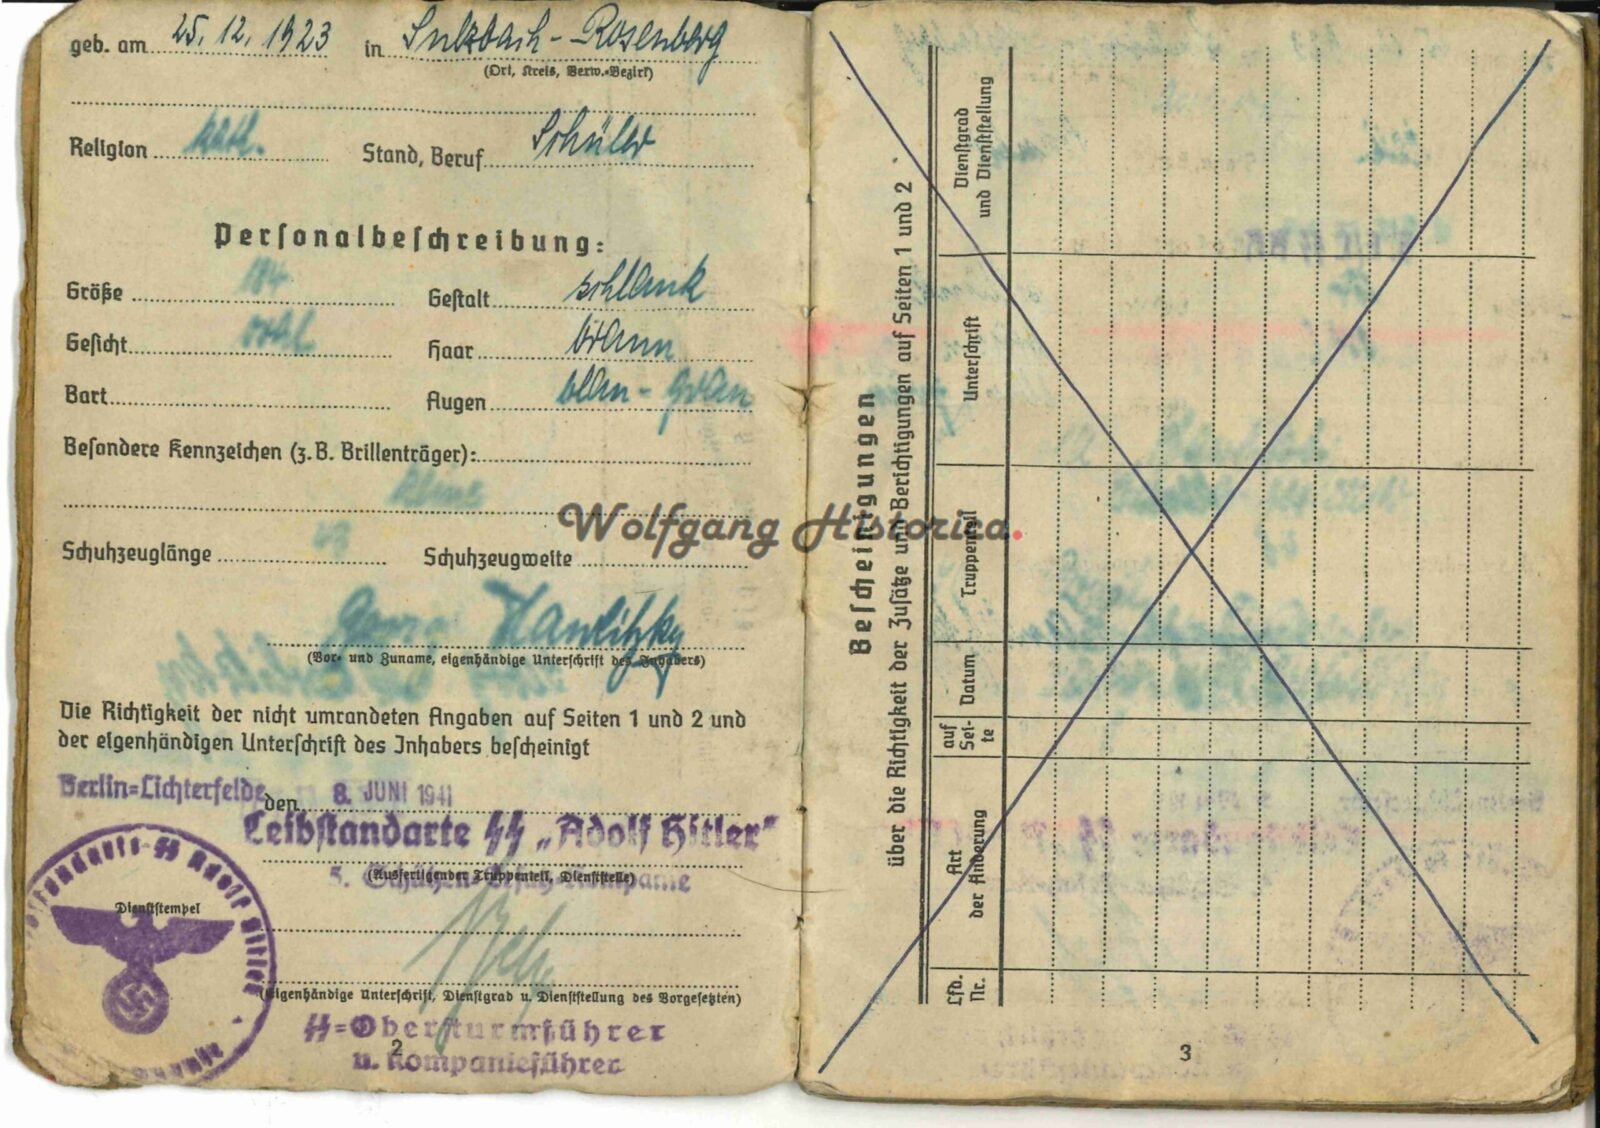 geb. am 25. 12. 1923 in Sulzbach-Rosenberg
(Ort, Kreis, Verw.-Bezirk)
Religion kath. Stand, Beruf Schüler
Personalbeschreibung:
Größe 184 Gestalt schlank
Gesicht oval Haar braun
Bart Augen blau-grau
Besondere Kennzeichen (z.B. Brillenträger):
Schuhzeuglänge 43 Schuhzeugweite
Georg Hawlitzky
(Vor- und Zuname, eigenhändige Unterschrift des Inhabers)
Die Richtigkeit der nicht umrandeten Angaben auf Seiten 1 und 2 und
der eigenhändigen Unterschrift des Inhabers bescheinigt
Berlin=Lichterfelde den 8. JUNI 1941
Leibstandarte SS „Adolf Hitler"
(Ausfertigender Truppenteil, Dienststelle)
5. Schützen-Ersatz-Kompanie
Dienststempel
Leibstandarte SS Adolf Hitler
(Eigenhändige Unterschrift, Dienstgrad u. Dienststellung des Vorgesetzten)
SS=Obersturmführer
u. Kompanieführer
2
Bescheinigungen
über die Richtigkeit der Zusätze und Berichtigungen auf Seiten 1 und 2
Lfd. Nr.
Art der Änderung
auf Sei-te
Datum
Truppenteil
Unterschrift
Dienstgrad und Dienststellung
3
Wolfgang Historica.